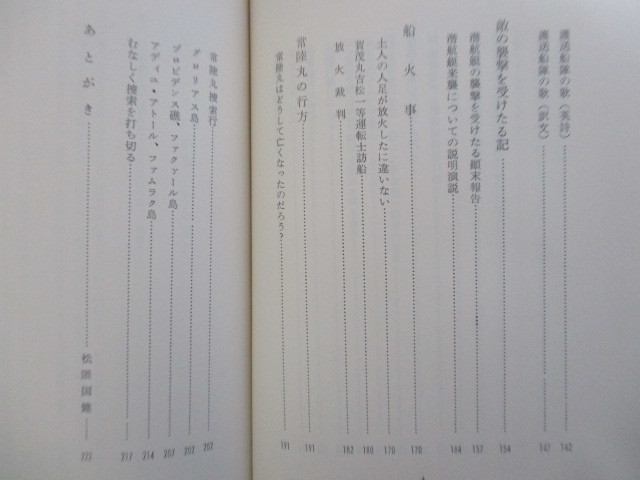 護送船隊の歌（英詩）……142
護送船隊の歌（訳文）……147
敵の襲撃を受けたる記……154
潜航艇の襲撃を受けたる顚末報告……157
潜航艇来襲についての説明演説……164
船火事……170
土人の人足が放火したに違いない……170
賀茂丸吉松一等運転士訪船……180
放火裁判……182
常陸丸の行方……191
常陸丸はどうして亡くなったのだろう？……191
常陸丸捜索行……202
グロリアス島……202
プロビデンス礁、ファクァール島……207
アディユ・アトール、ファムラク島……214
むなしく捜索を打ち切る……217
あとがき……222